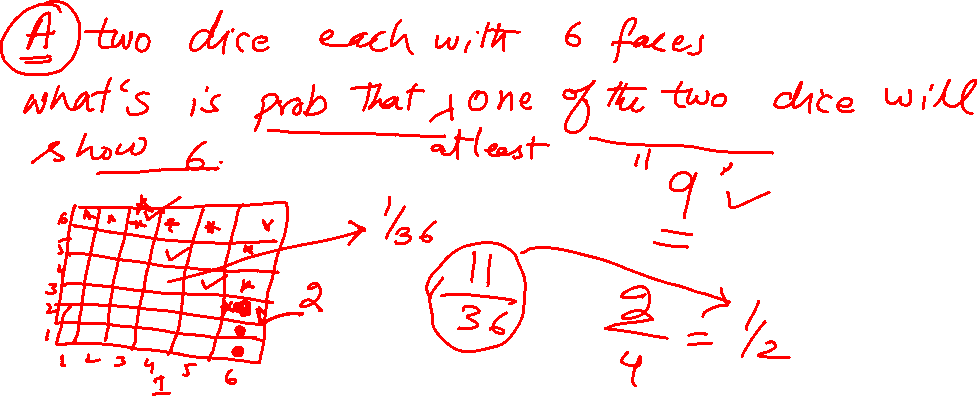 A two dice each with 6 faces
what's is prob that one of the two dice will
atleast
show 6.
"9"
6
5
4
3
2
1
1 2 3 4 5 6
1
1/36
2
11/36
2/4 = 1/2